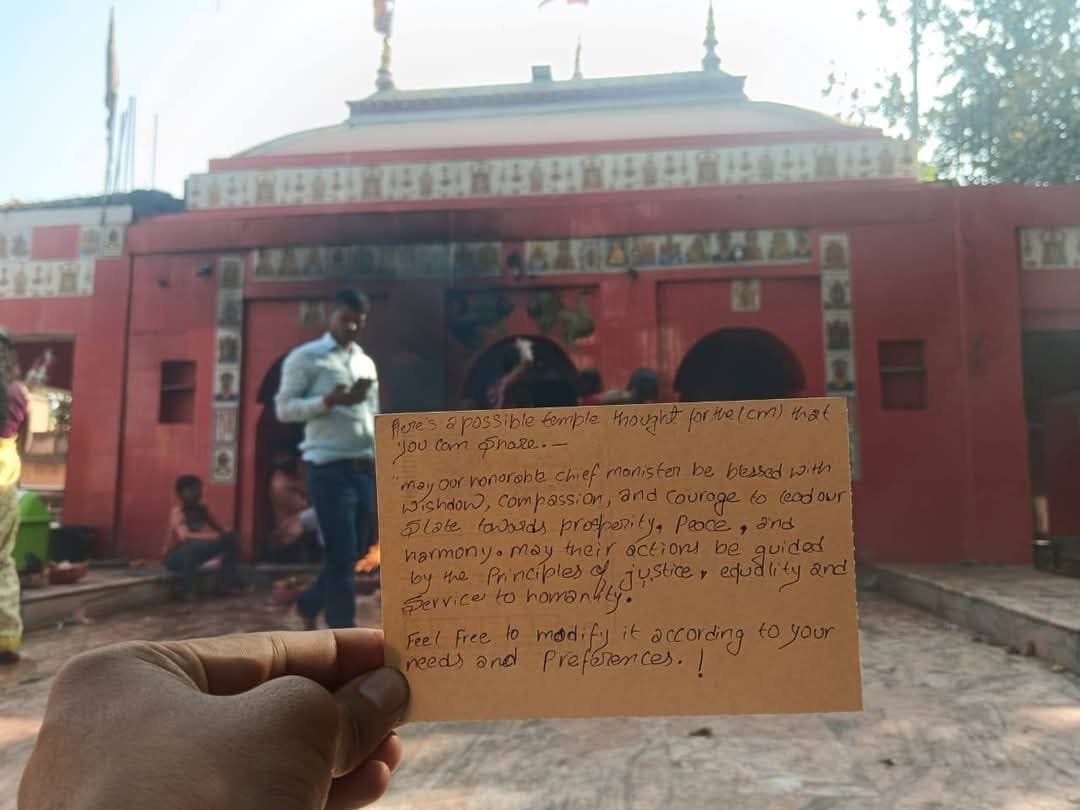 Here's a possible temple thought for the (cm) that
you can share. —
"may our honorable chief monister be blessed with
wishdow, compassion, and courage to lead our
state towards prosperity, Peace, and
harmony. may their actions be guided
by the Principles of justice, equality and
Service to homanity."
Feel Free to modify it according to your
needs and Preferences. !